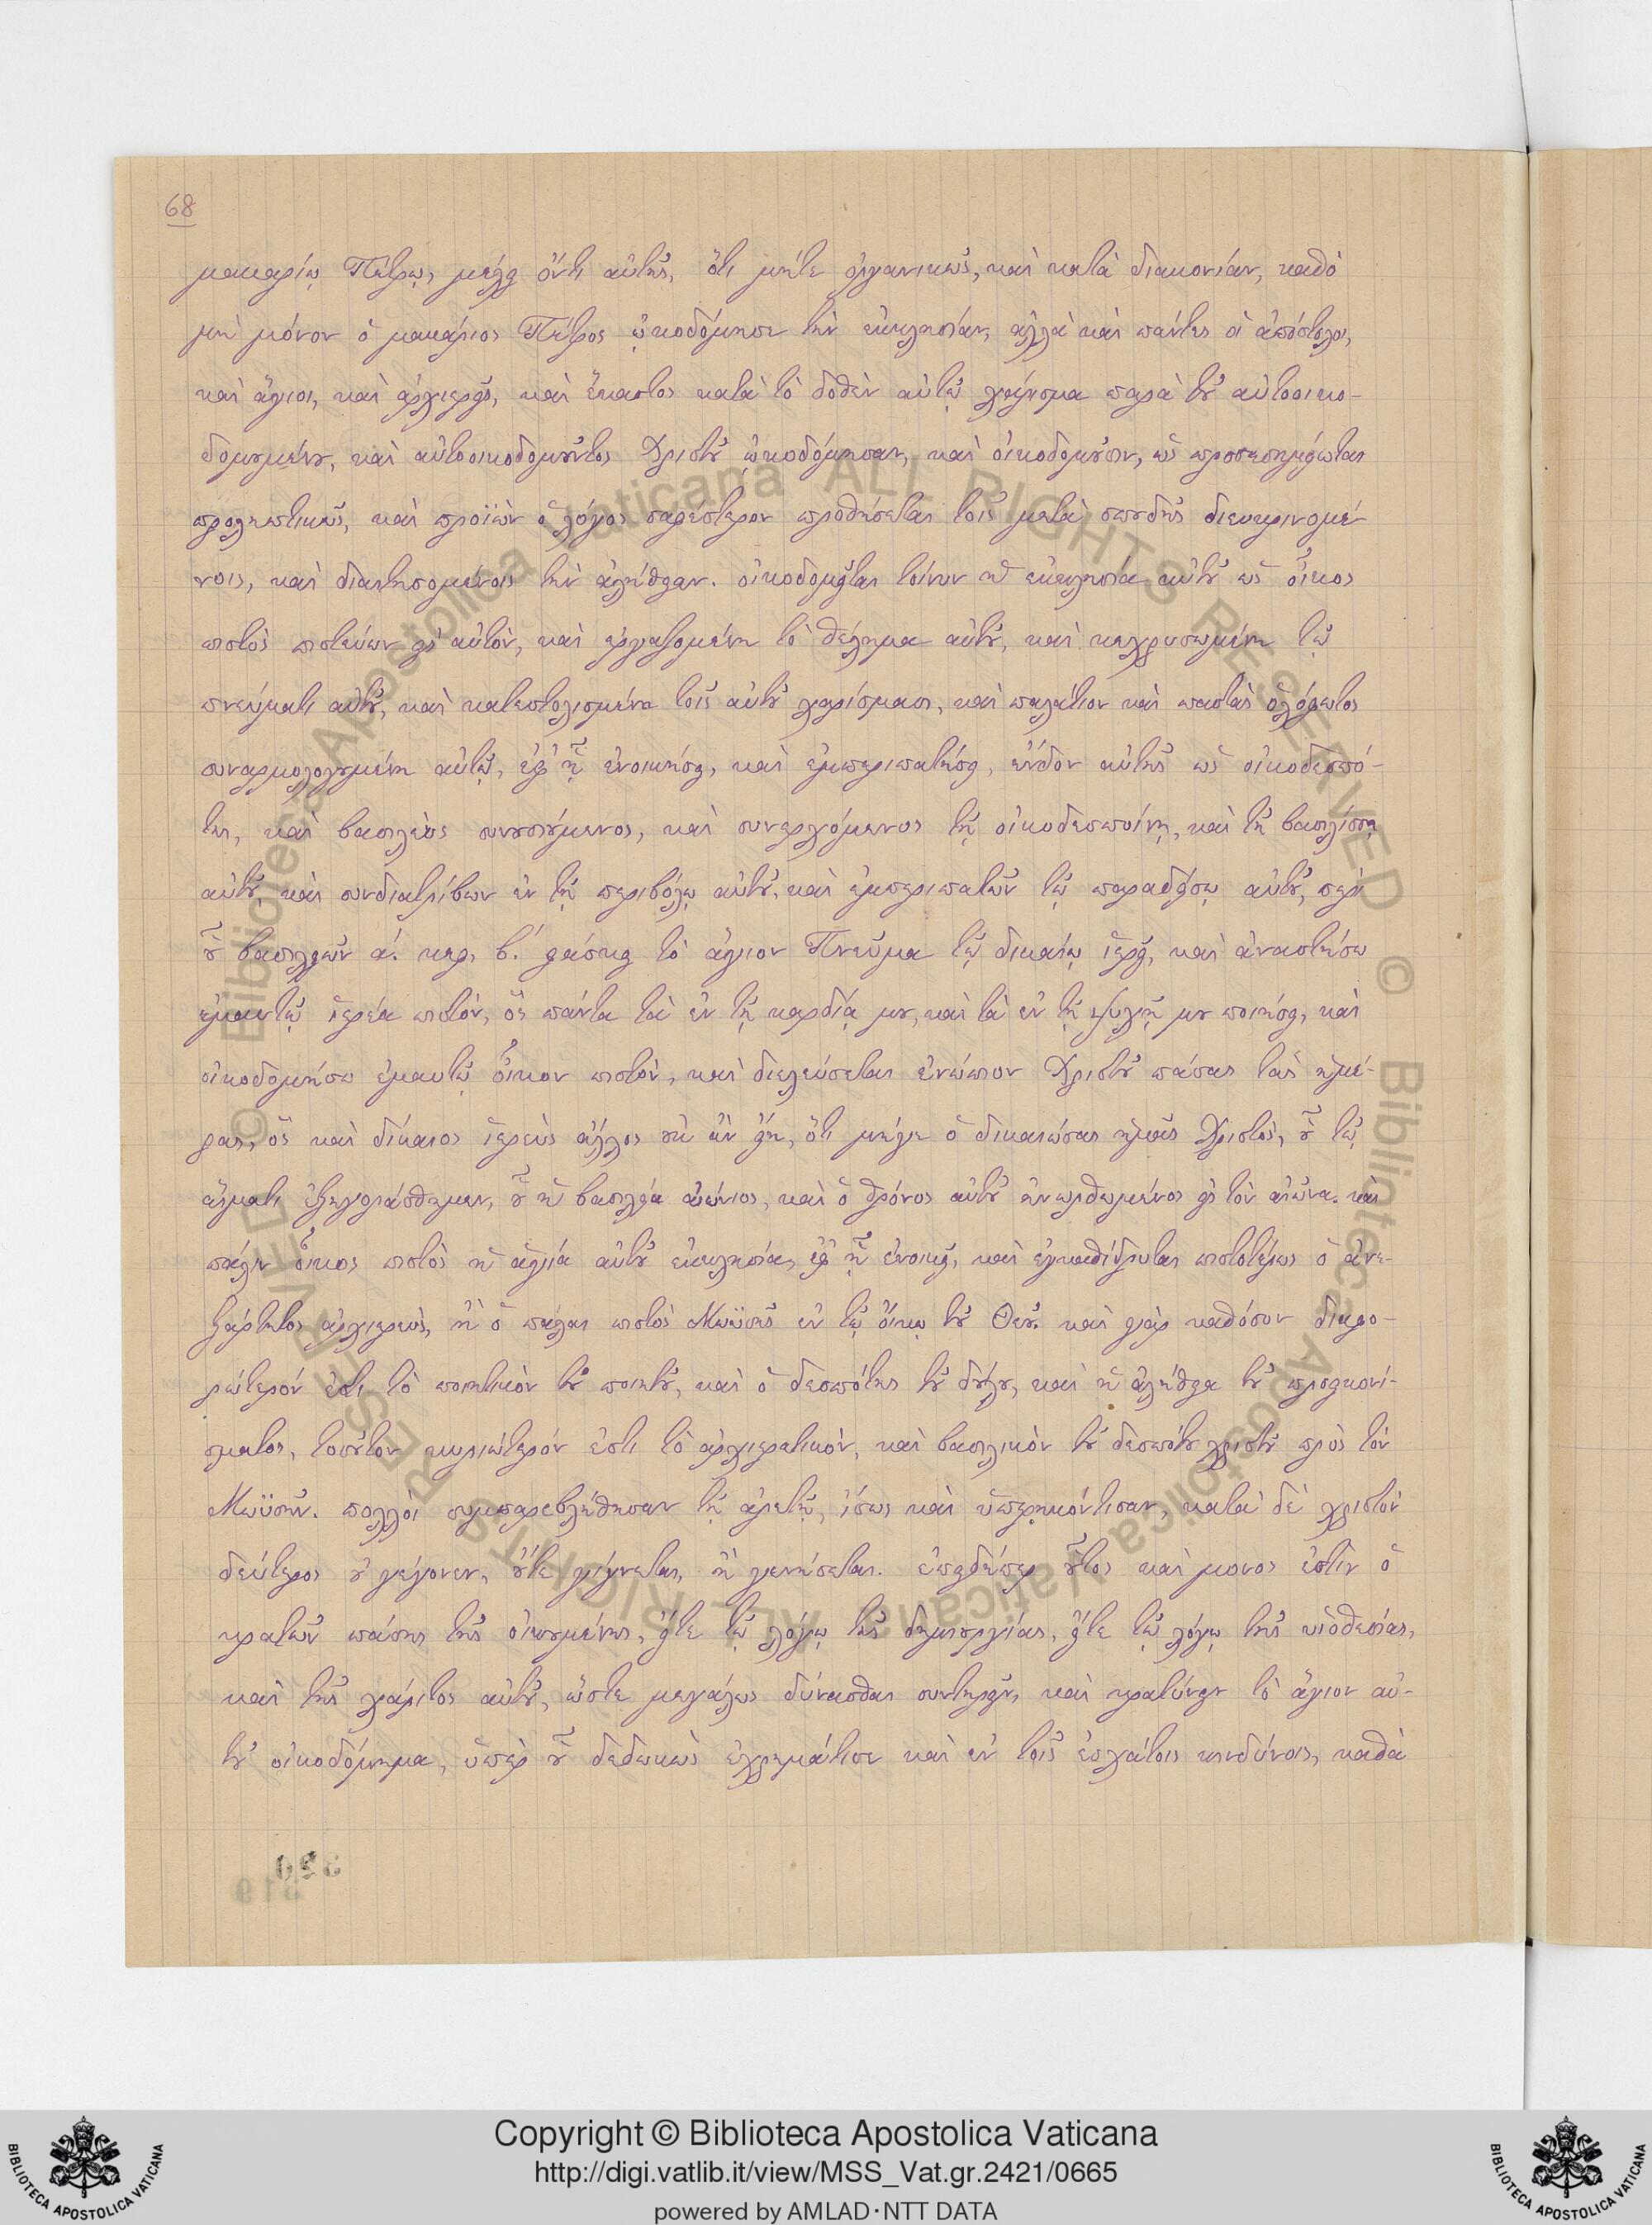 68
μακαρίῳ Πέτρῳ, μέλει ὄντι αὐτῆς, ὅτι μήτε ὀργανικῶς, καὶ κατὰ διακονίαν, καθὸ
μὴ μόνον ὁ μακάριος Πέτρος ᾠκοδόμησε τὴν ἐκκλησίαν, ἀλλὰ καὶ πάντες οἱ ἀπόστολοι,
καὶ ἅγιοι, καὶ ἀρχιερεῖς, καὶ ἕκαστος κατὰ τὸ δοθὲν αὐτῷ χάρισμα παρὰ τοῦ αὐτοοικο-
δομουμένου, καὶ αὐτοοικοδομοῦντος Χριστοῦ ᾠκοδόμησαν, καὶ οἰκοδομοῦσιν, ὡς προσεσημείωται
προληπτικῶς, καὶ προϊὼν ὁ λόγος σαφέστερον προθήσεται τοῖς μετὰ σπουδῆς διευκρινομέ-
νοις, καὶ διαιτησομένοις τὴν ἀλήθειαν. οἰκοδομεῖται τοίνυν ἡ ἐκκλησία αὐτοῦ ὡς οἶκος
πιστὸς πιστεύων εἰς αὐτὸν, καὶ ἐργαζομένη τὸ θέλημα αὐτοῦ, καὶ κεχρυσωμένη τῷ
πνεύματι αὐτοῦ, καὶ κατεστολισμένη τοῖς αὐτοῦ χαρίσμασι, καὶ παλάτιον καὶ παστὰς ὁλόφωτος
συναρμολογουμένη αὐτῷ, ἐφ' ᾗ ἐνοικήσει, καὶ ἐμπεριπατήσει, ἔνδον αὐτῆς ὡς οἰκοδεσπό-
της, καὶ βασιλεὺς συνουσιούμενος, καὶ συνερχόμενος τῇ οἰκοδεσποίνῃ, καὶ τῇ βασιλίσσῃ
αὐτοῦ, καὶ συνδιατρίβων ἐν τῇ περιβόλῳ αὐτοῦ, καὶ ἐμπεριπατῶν τῷ παραδείσῳ αὐτοῦ, περὶ
οὗ βασιλειῶν α΄. κεφ. β΄. φάσκει τὸ ἅγιον Πνεῦμα τῷ δικαίῳ ἱερεῖ, καὶ ἀναστήσω
ἐμαυτῷ ἱερέα πιστὸν, ὃς πάντα τὰ ἐν τῇ καρδίᾳ μου, καὶ τὰ ἐν τῇ ψυχῇ μου ποιήσει, καὶ
οἰκοδομήσω ἐμαυτῷ οἶκον πιστὸν, καὶ διελεύσεται ἐνώπιον Χριστοῦ πάσας τὰς ἡμέ-
ρας, ὃς καὶ δίκαιος ἱερεὺς ἄλλος οὐκ ἂν εἴη, ὅτι μήγε ὁ δικαιώσας ἡμᾶς Χριστὸς, οὗ τῷ
αἵματι ἐξηγοράσθημεν, οὗ ἡ βασιλεία αἰώνιος, καὶ ὁ θρόνος αὐτοῦ ἀνωρθωμένος εἰς τὸν αἰῶνα. καὶ
πάλιν οἶκος πιστὸς ἡ ἁγία αὐτοῦ ἐκκλησία, ἐφ' ᾗ ἐνοικεῖ, καὶ ἐγκαθίδρυται πιστοτέρως ὁ ἀνε-
ξάρτητος ἀρχιερεὺς, ἢ ὁ πάλαι πιστὸς Μωϋσῆς ἐν τῷ οἴκῳ τοῦ Θεοῦ. καὶ γὰρ καθόσον διαφο-
ρώτερόν ἐστι τὸ ποιητικὸν τοῦ ποιητοῦ, καὶ ὁ δεσπότης τοῦ δούλου, καὶ ἡ ἀλήθεια τοῦ προεικονί-
σματος, τοσοῦτον κυριώτερόν ἐστι τὸ ἀρχιερατικὸν, καὶ βασιλικὸν τοῦ δεσπότου χριστοῦ πρὸς τὸν
Μωϋσῆν. πολλοὶ συμπαρεβλήθησαν τῇ ἀρετῇ, ἴσως καὶ ὑπερηκόντισαν, κατὰ δὲ χριστὸν
δεύτερος οὐ γέγονεν, οὔτε γίγνεται, ἢ γενήσεται. ἐπειδήπερ οὗτος καὶ μονος ἐστὶν ὁ
κρατῶν πάσης τῆς οἰκουμένης, εἴτε τῷ λόγῳ τῆς δημιουργίας, εἴτε τῷ λόγῳ τῆς υἱοθεσίας,
καὶ τῆς χάριτος αὐτοῦ, ὥστε μεγάλως δύνασθαι συντηρεῖν, καὶ κρατύνειν τὸ ἅγιον αὐ-
τοῦ οἰκοδόμημα, ὑπὲρ οὗ δεδωκὼς ἐχρημάτισε καὶ ἐν τοῖς ἐσχάτοις κινδύνοις, καθὰ
Copyright © Biblioteca Apostolica Vaticana
http://digi.vatlib.it/view/MSS_Vat.gr.2421/0665
powered by AMLAD·NTT DATA
BIBLIOTECA APOSTOLICA VATICANA
BIBLIOTECA APOSTOLICA VATICANA
© Biblioteca Apostolica Vaticana ALL RIGHTS RESERVED
© Biblioteca Apostolica Vaticana ALL RIGHTS RESERVED